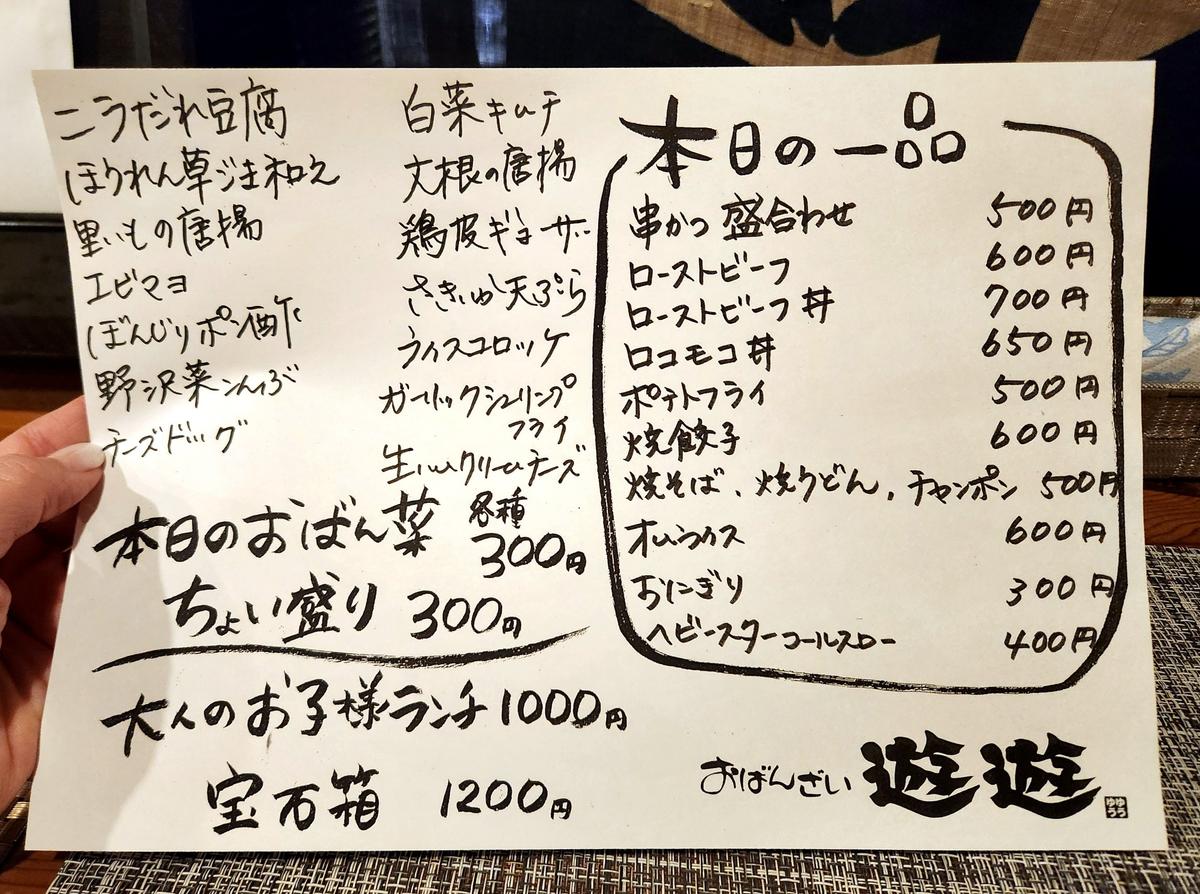 こうだれ豆腐
ほうれん草ジャコ和え
里いもの唐揚
エビマヨ
ぼんじりポン酢
野沢菜こんぶ
チーズドッグ
白菜キムチ
大根の唐揚
鶏皮ギョーザ
さきいか天ぷら
ライスコロッケ
ガーリックシュリンプ
フライ
生ハムクリームチーズ
本日のおばん菜 各種 300円
ちょい盛り 300円
大人のお子様ランチ 1000円
宝石箱 1200円
本日の一品
串かつ 盛合わせ 500円
ローストビーフ 600円
ローストビーフ丼 700円
ロコモコ丼 650円
ポテトフライ 500円
焼餃子 600円
焼そば、焼うどん、チャンポン 500円
オムライス 600円
おにぎり 300円
ベビースターコールスロー 400円
おばんざい 遊遊
ゆう ゆう